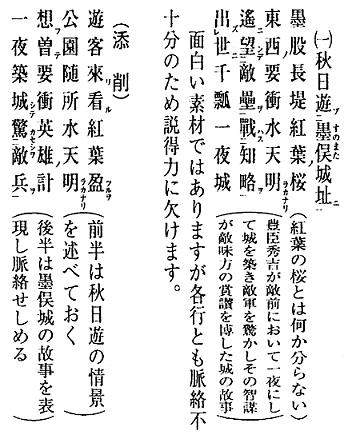 ㈠秋日遊墨俣城址
墨股長堤紅葉桜(紅葉の桜とは何か分らない)
東西要衝水天明(豊臣秀吉が敵前において一夜にし
遙望敵塁戦知略 て城を築き敵軍を驚かしその智謀
出世千瓢一夜城 が敵味方の賞讃を博した城の故事)
面白い素材ではありますが各行とも脈絡不
十分のため説得力に欠けます。
(添削)
遊客來看紅葉盈 前半は秋日遊の情景
公園随所水天明 を述べておく
想曽要衝英雄計 後半は墨俣城の故事を表
一夜築城驚敵兵 現し脈絡せしめる